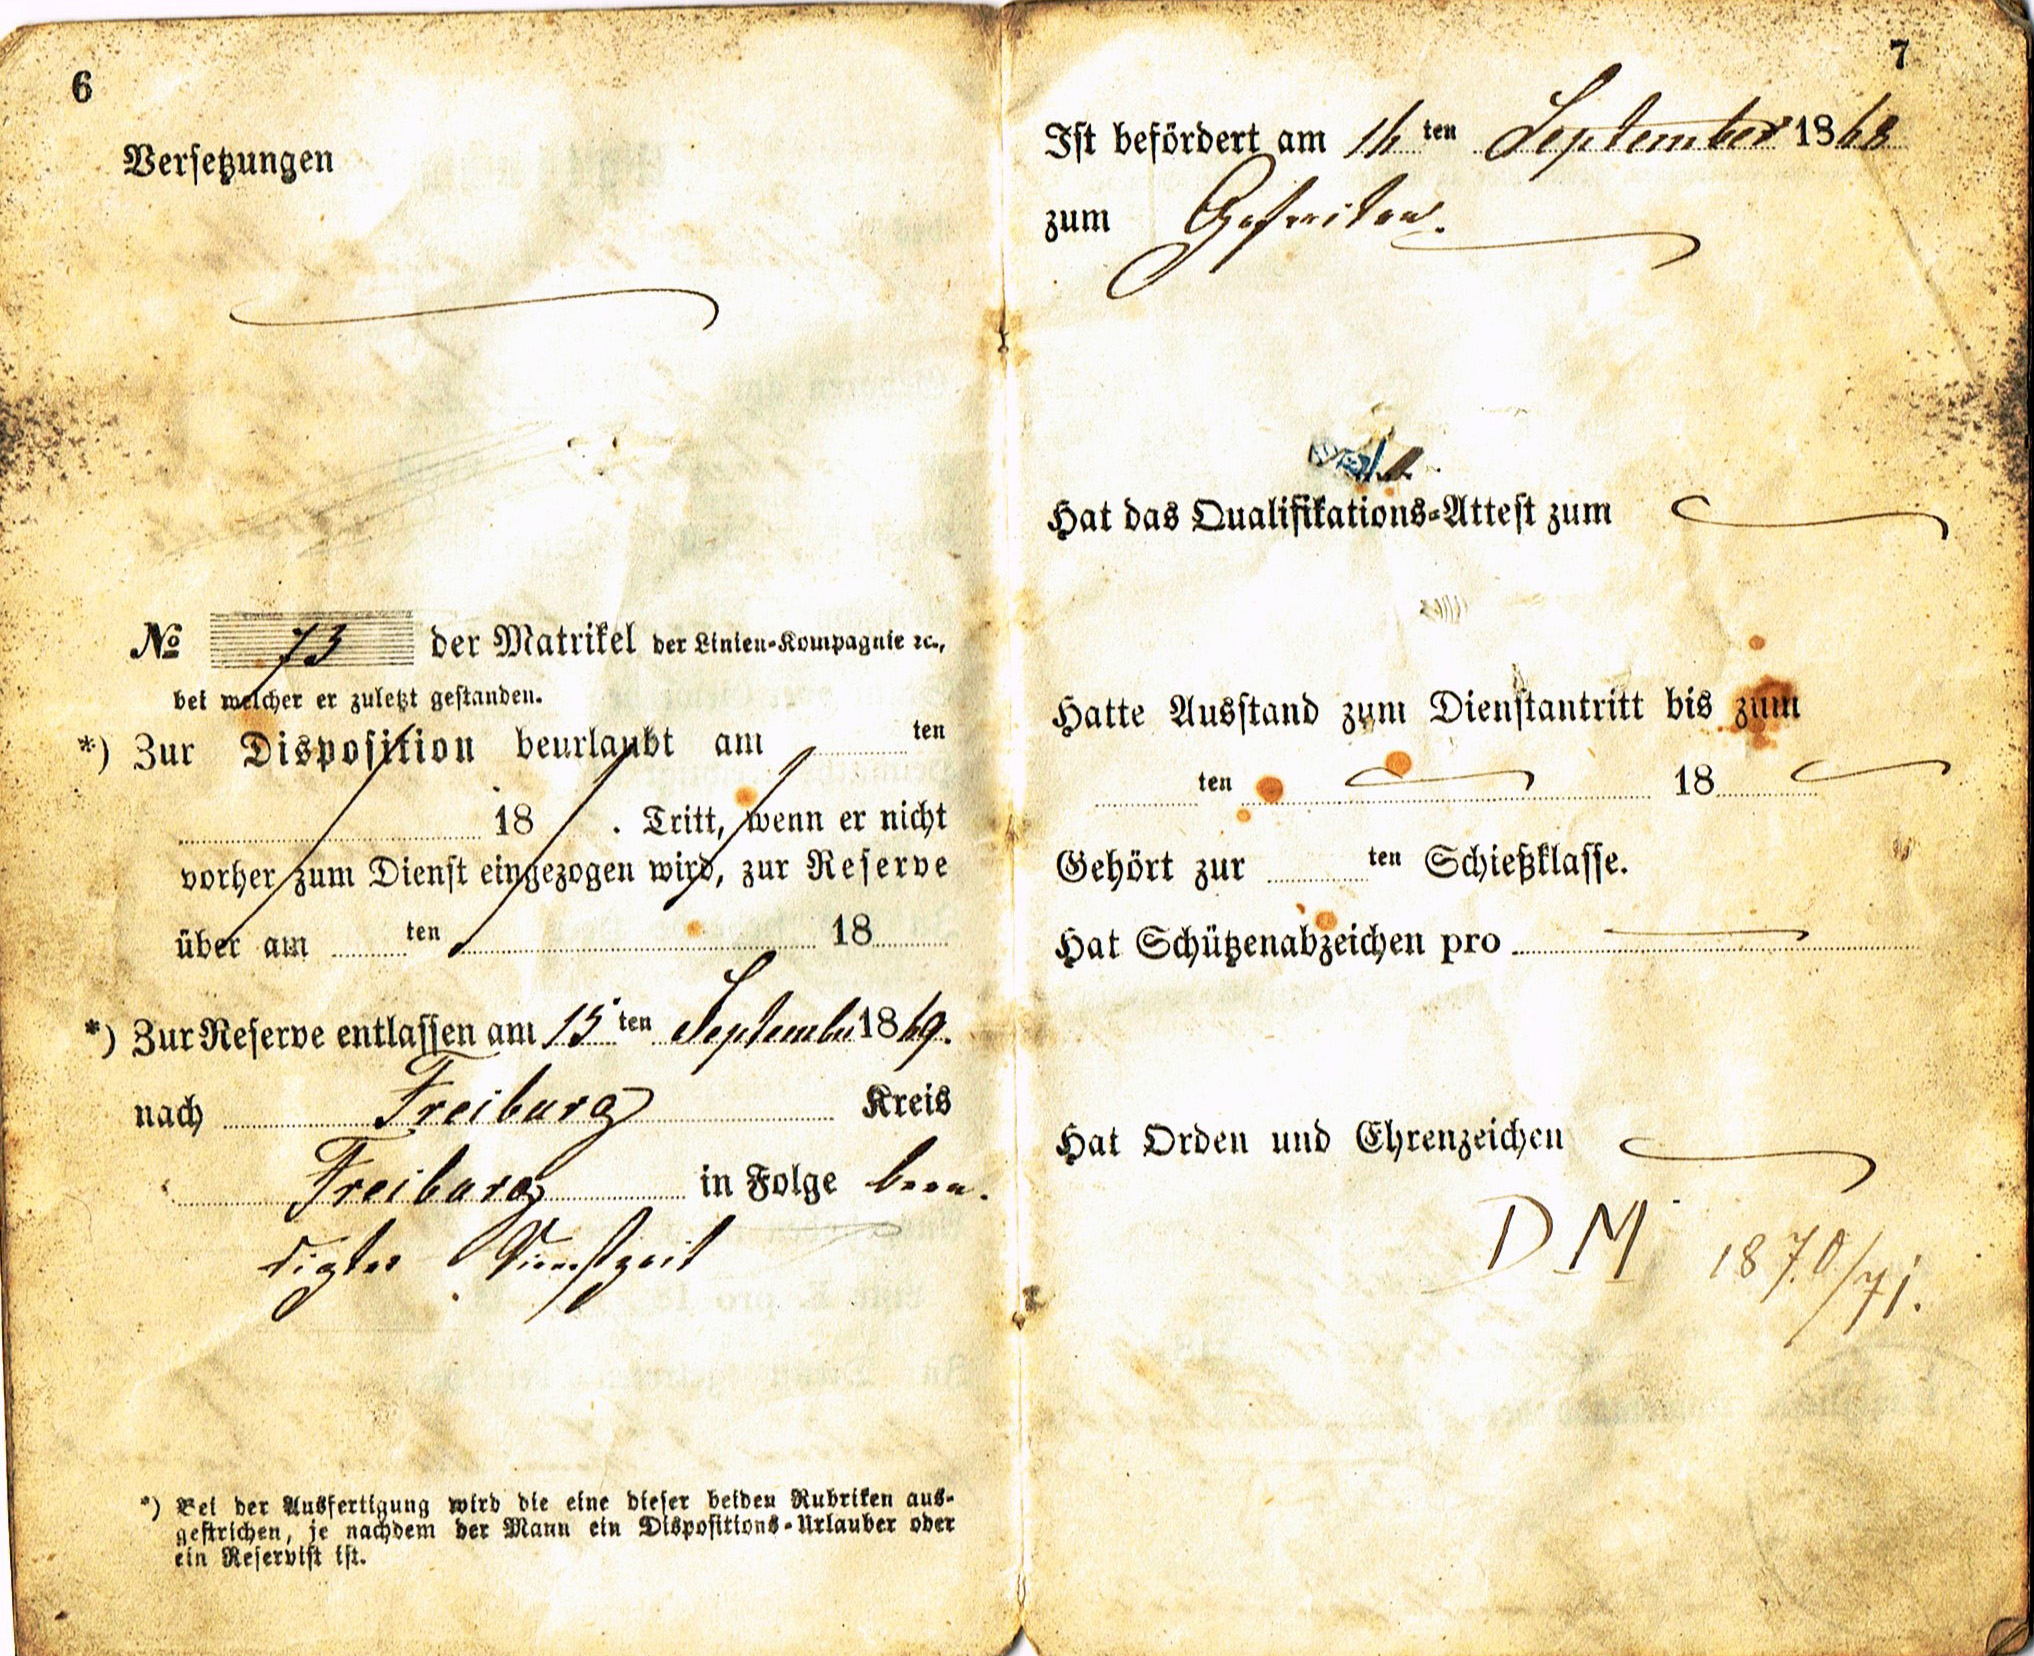 6
Versetzungen
No 73 der Matrikel der Linien-Kompagnie ꝛc.,
bei welcher er zuletzt gestanden.
*) Zur Disposition beurlaubt am ten
18 . Tritt, wenn er nicht
vorher zum Dienst eingezogen wird, zur Reserve
über am ten 18
*) Zur Reserve entlassen am 15 ten September 1869.
nach Freiburg Kreis
Freiburg in Folge been-
digter Dienstzeit
*) Bei der Ausfertigung wird die eine dieser beiden Rubriken aus-
gestrichen, je nachdem der Mann ein Dispositions-Urlauber oder
ein Reservist ist.
7
Ist befördert am ten September 1868
zum Gefreiten.
Hat das Qualifikations-Attest zum
Hatte Ausstand zum Dienstantritt bis zum
ten 18
Gehört zur ten Schießklasse.
Hat Schützenabzeichen pro
Hat Orden und Ehrenzeichen
D M 1870/71.